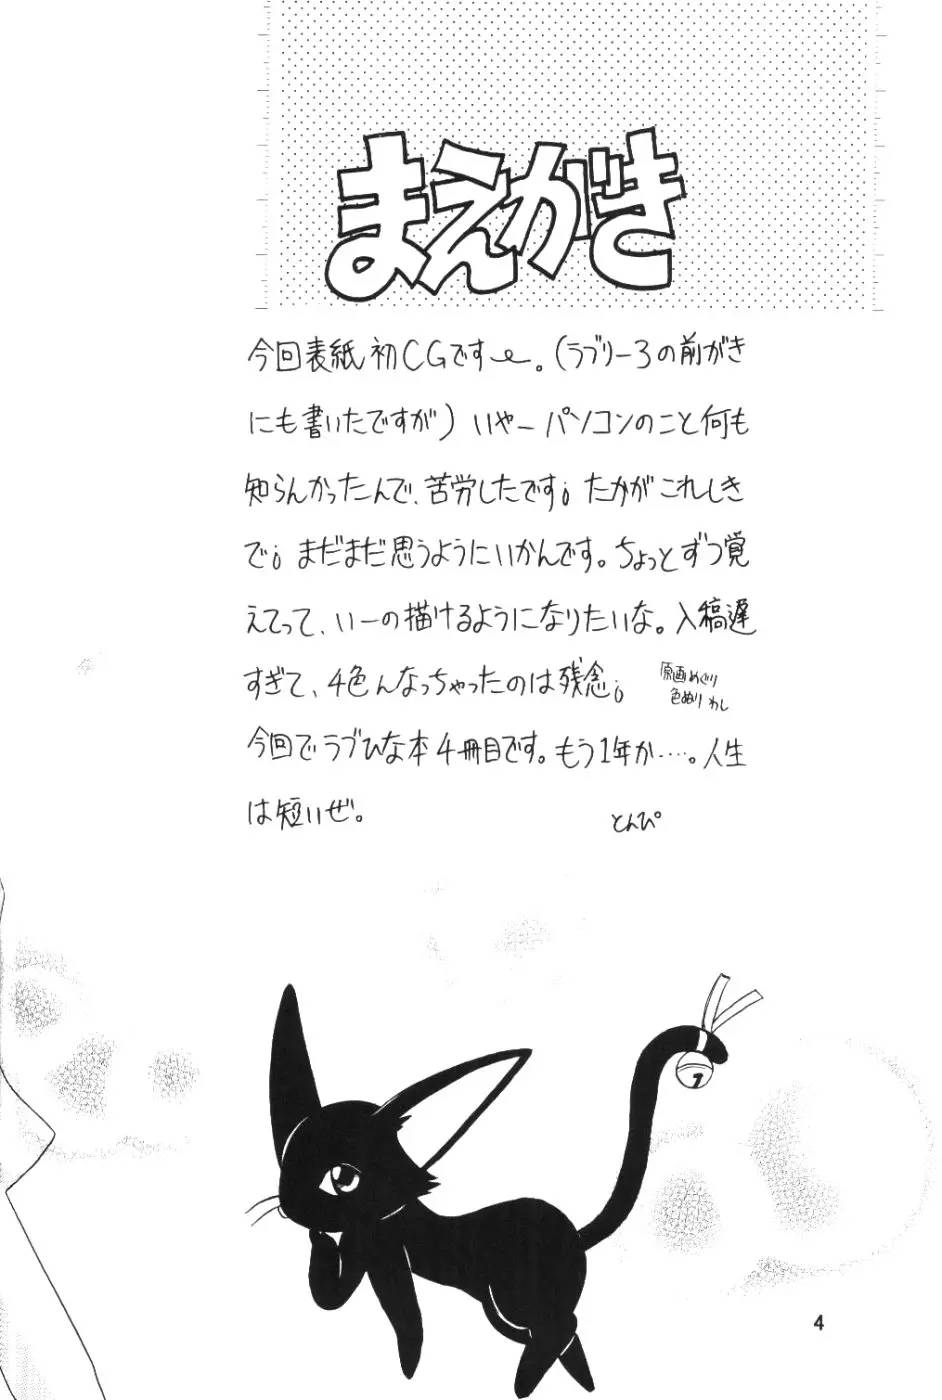 まえがき
今回表紙初CGですv。(ラブリー3の前がき
にも書いたですが)いやーパソコンのこと何も
知らんかったんで、苦労したです。たかがこれしき
で。まだまだ思うようにいかんです。ちょっとずつ覚
えてって、いーの描けるようになりたいな。入稿遅
すぎて、4色んなっちゃったのは残念。
原画めぐり
色ぬりわし
今回でラブひな本4冊目です。もう1年か……。人生
は短いぜ。
とんぴ
4